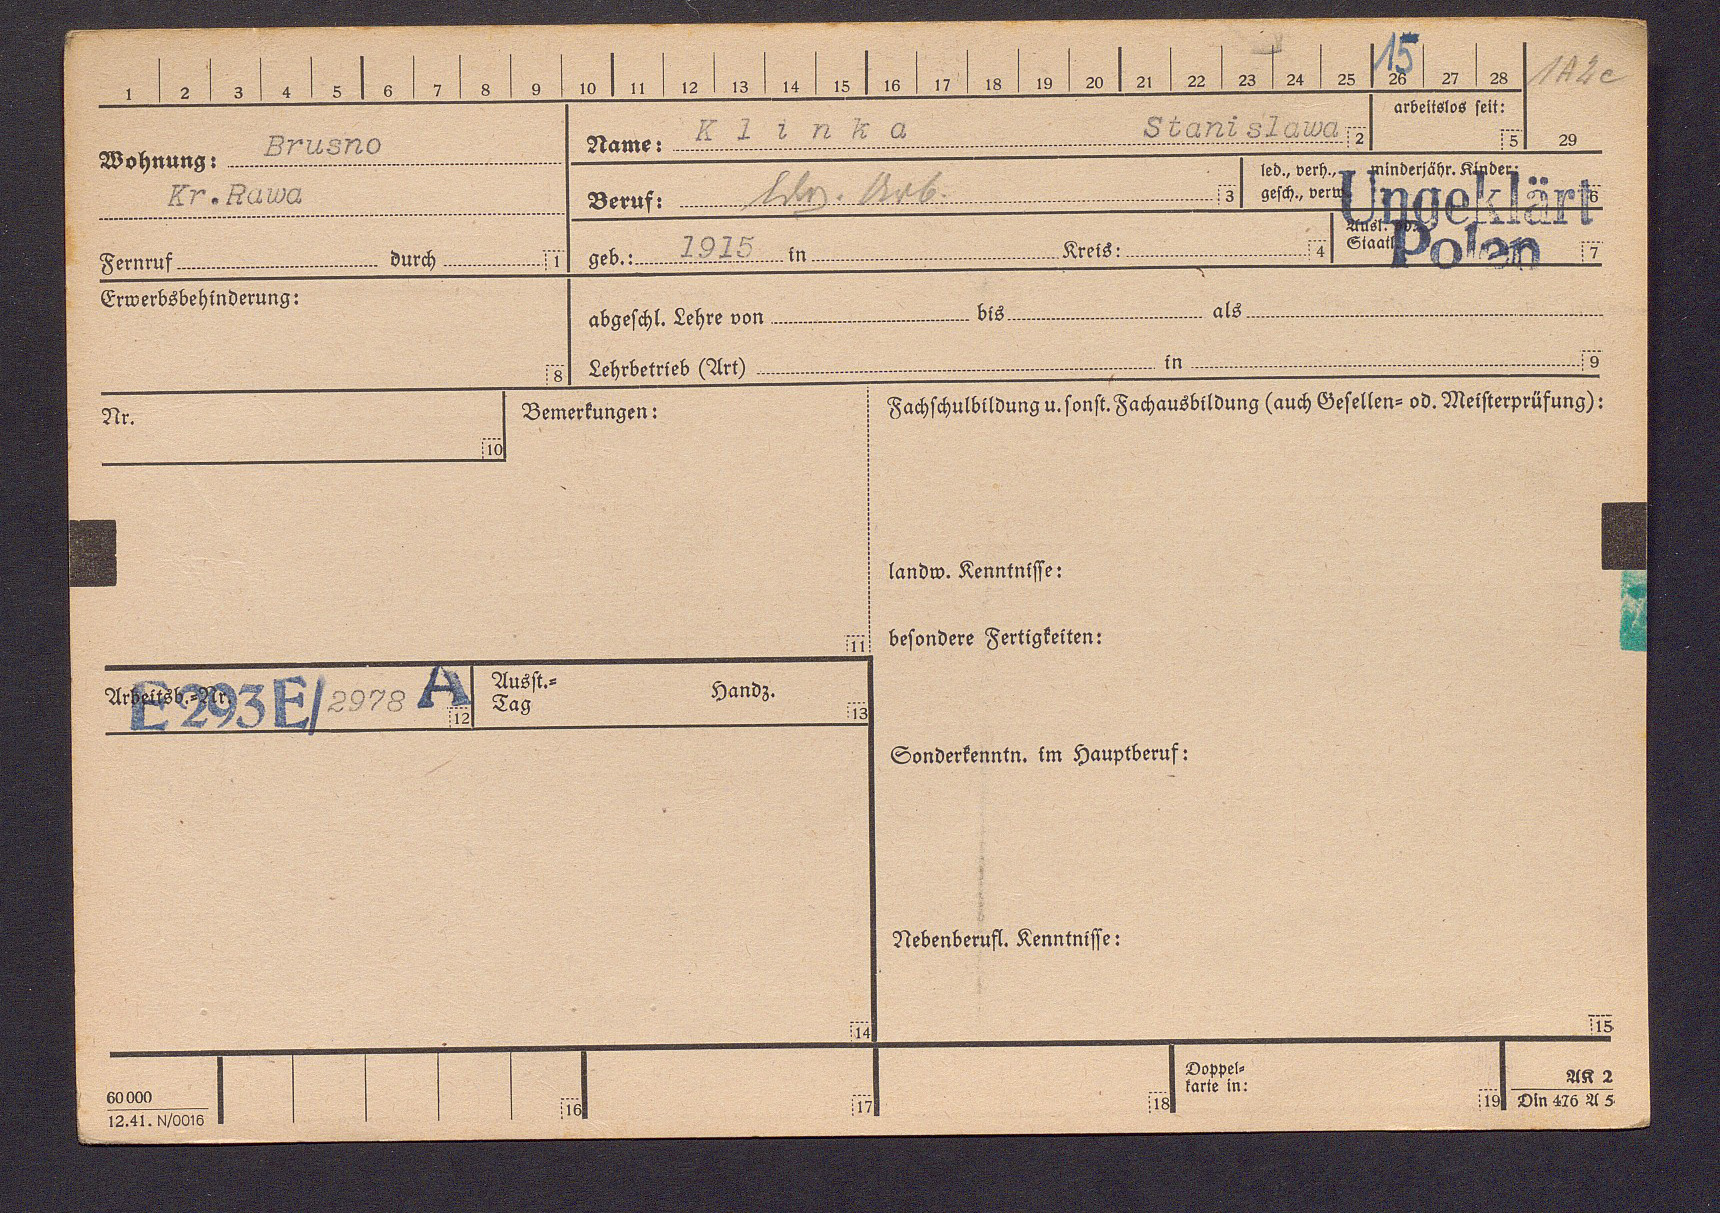 1 2 3 4 5 6 7 8 9 10 11 12 13 14 15 16 17 18 19 20 21 22 23 24 25 26 27 28 29
15
1A2c
Wohnung: Brusno
Kr.Rawa
Fernruf durch 1
Name: Klinka Stanislawa 2
arbeitslos seit: 5
Beruf: Arb. 3
led., verh., gesch., verw.
minderjähr. Kinder: 6
Ungeklärt
geb.: 1915 in Kreis: 4
Ausl. od.
Staatl. 7
Polen
Erwerbsbehinderung: 8
abgeschl. Lehre von bis als
Lehrbetrieb (Art) in 9
Nr. 10
Bemerkungen: 11
Fachschulbildung u. sonst. Fachausbildung (auch Gesellen- od. Meisterprüfung):
landw. Kenntnisse:
besondere Fertigkeiten:
Arbeitsb.-Nr. 12
E 293 E/ 2978 A
Ausst.-
Tag Handz. 13
Sonderkenntn. im Hauptberuf:
Nebenberufl. Kenntnisse:
14
15
60 000
12.41. N/0016
16
17
18
Doppel-
karte in: 19
AK 2
Din 476 A 5